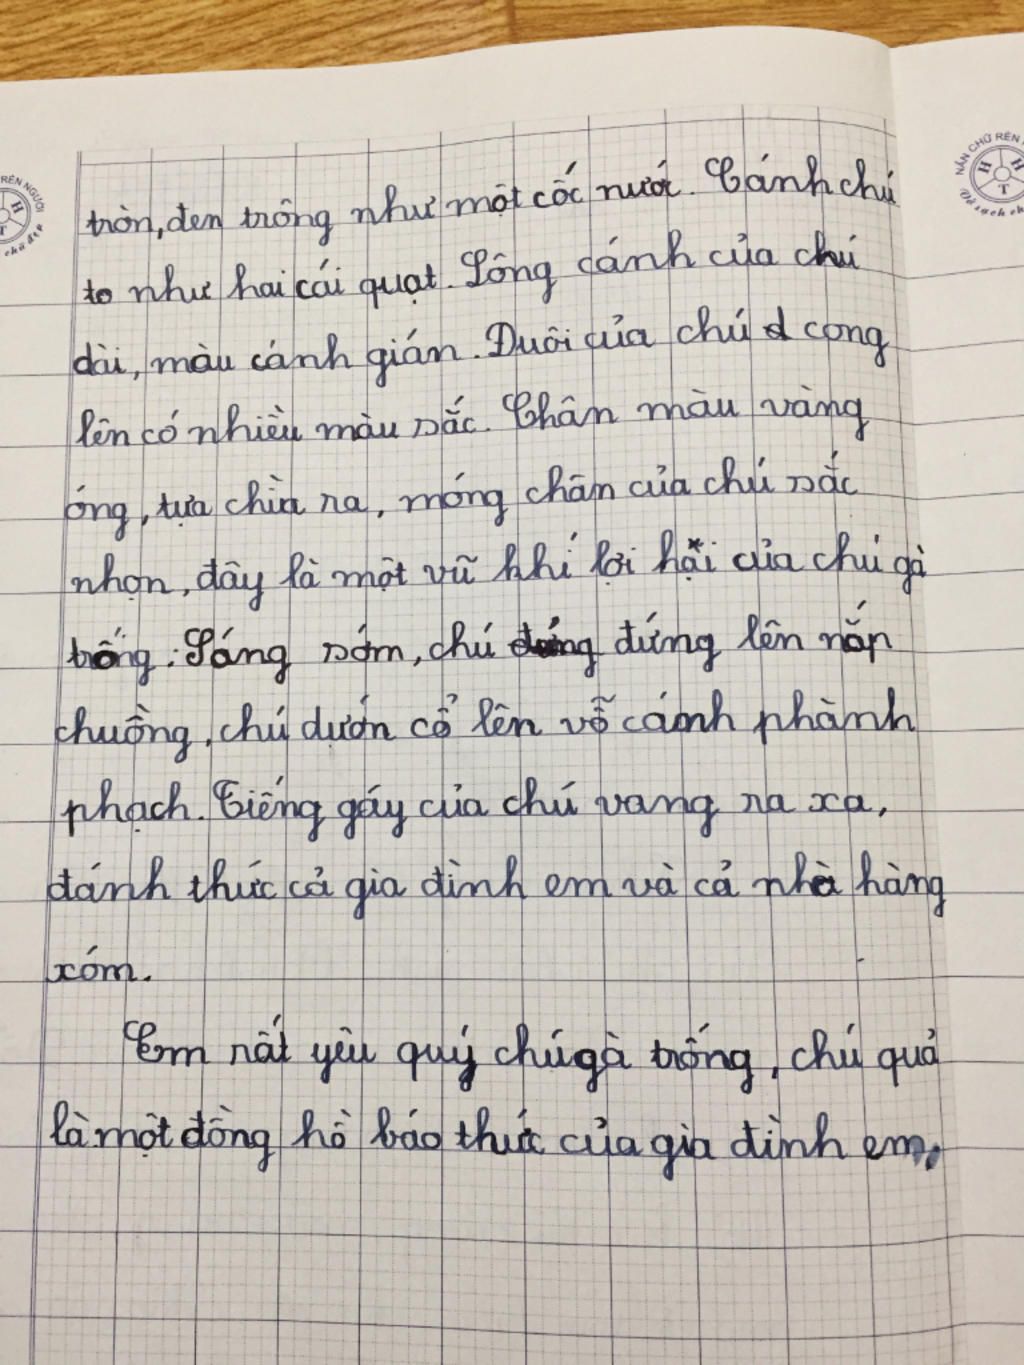 tròn, đen trông như một cốc nước. Cánh chú
to như hai cái quạt. Lông cánh của chú
dài, màu cánh gián. Đuôi của chú cong
lên có nhiều màu sắc. Chân màu vàng
óng, tựa chìa ra, móng chân của chú sắc
nhọn, đây là một vũ khí lợi hại của chú gà
trống. Sáng sớm, chú đứng lên nắp
chuồng, chú dướn cổ lên vỗ cánh phành
phạch. Tiếng gáy của chú vang ra xa,
đánh thức cả gia đình em và cả nhà hàng
xóm.
Em rất yêu quý chú gà trống, chú quả
là một đồng hồ báo thức của gia đình em.
RÈN NGƯỜI
H
T
chữ đẹp
NẮN CHỮ RÈN
H H
T
Vở sạch ch